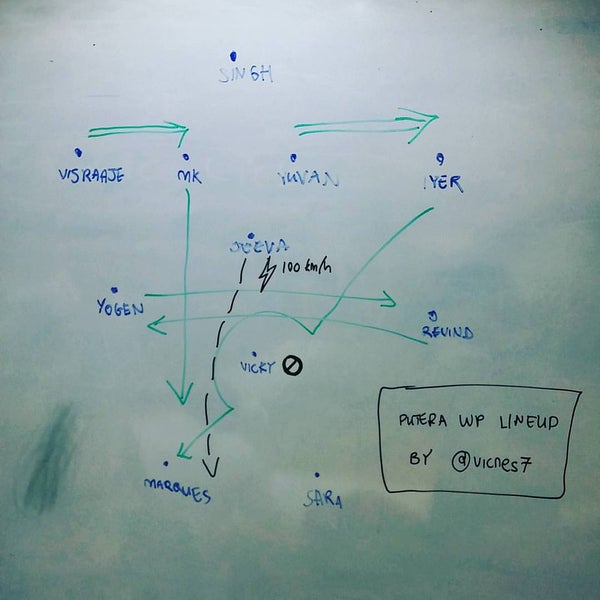 SINGH
VISRAAJE MK YUVAN IYER
JEEVA
100 km/h
YOGEN
REVIND
VICKY
PUTERA WP LINEUP
BY @vicnes7
MARQUES
SARA